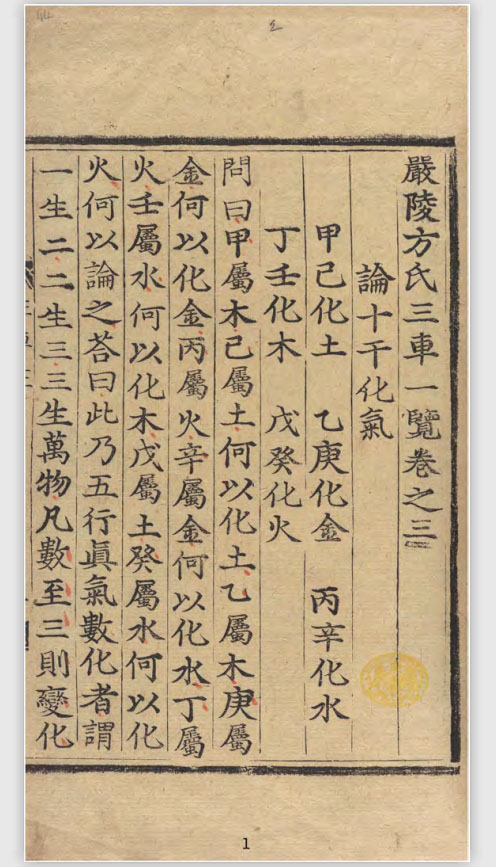 嚴陵方氏三車一覽卷之三
論十干化氣
甲己化土 乙庚化金 丙辛化水
丁壬化木 戊癸化火
問曰甲屬木己屬土何以化土乙屬木庚屬
金何以化金丙屬火辛屬金何以化水丁屬
火壬屬水何以化木戊屬土癸屬水何以化
火何以論之荅曰此乃五行眞氣數化者謂
一生二二生三三生萬物凡數至三則變化
1